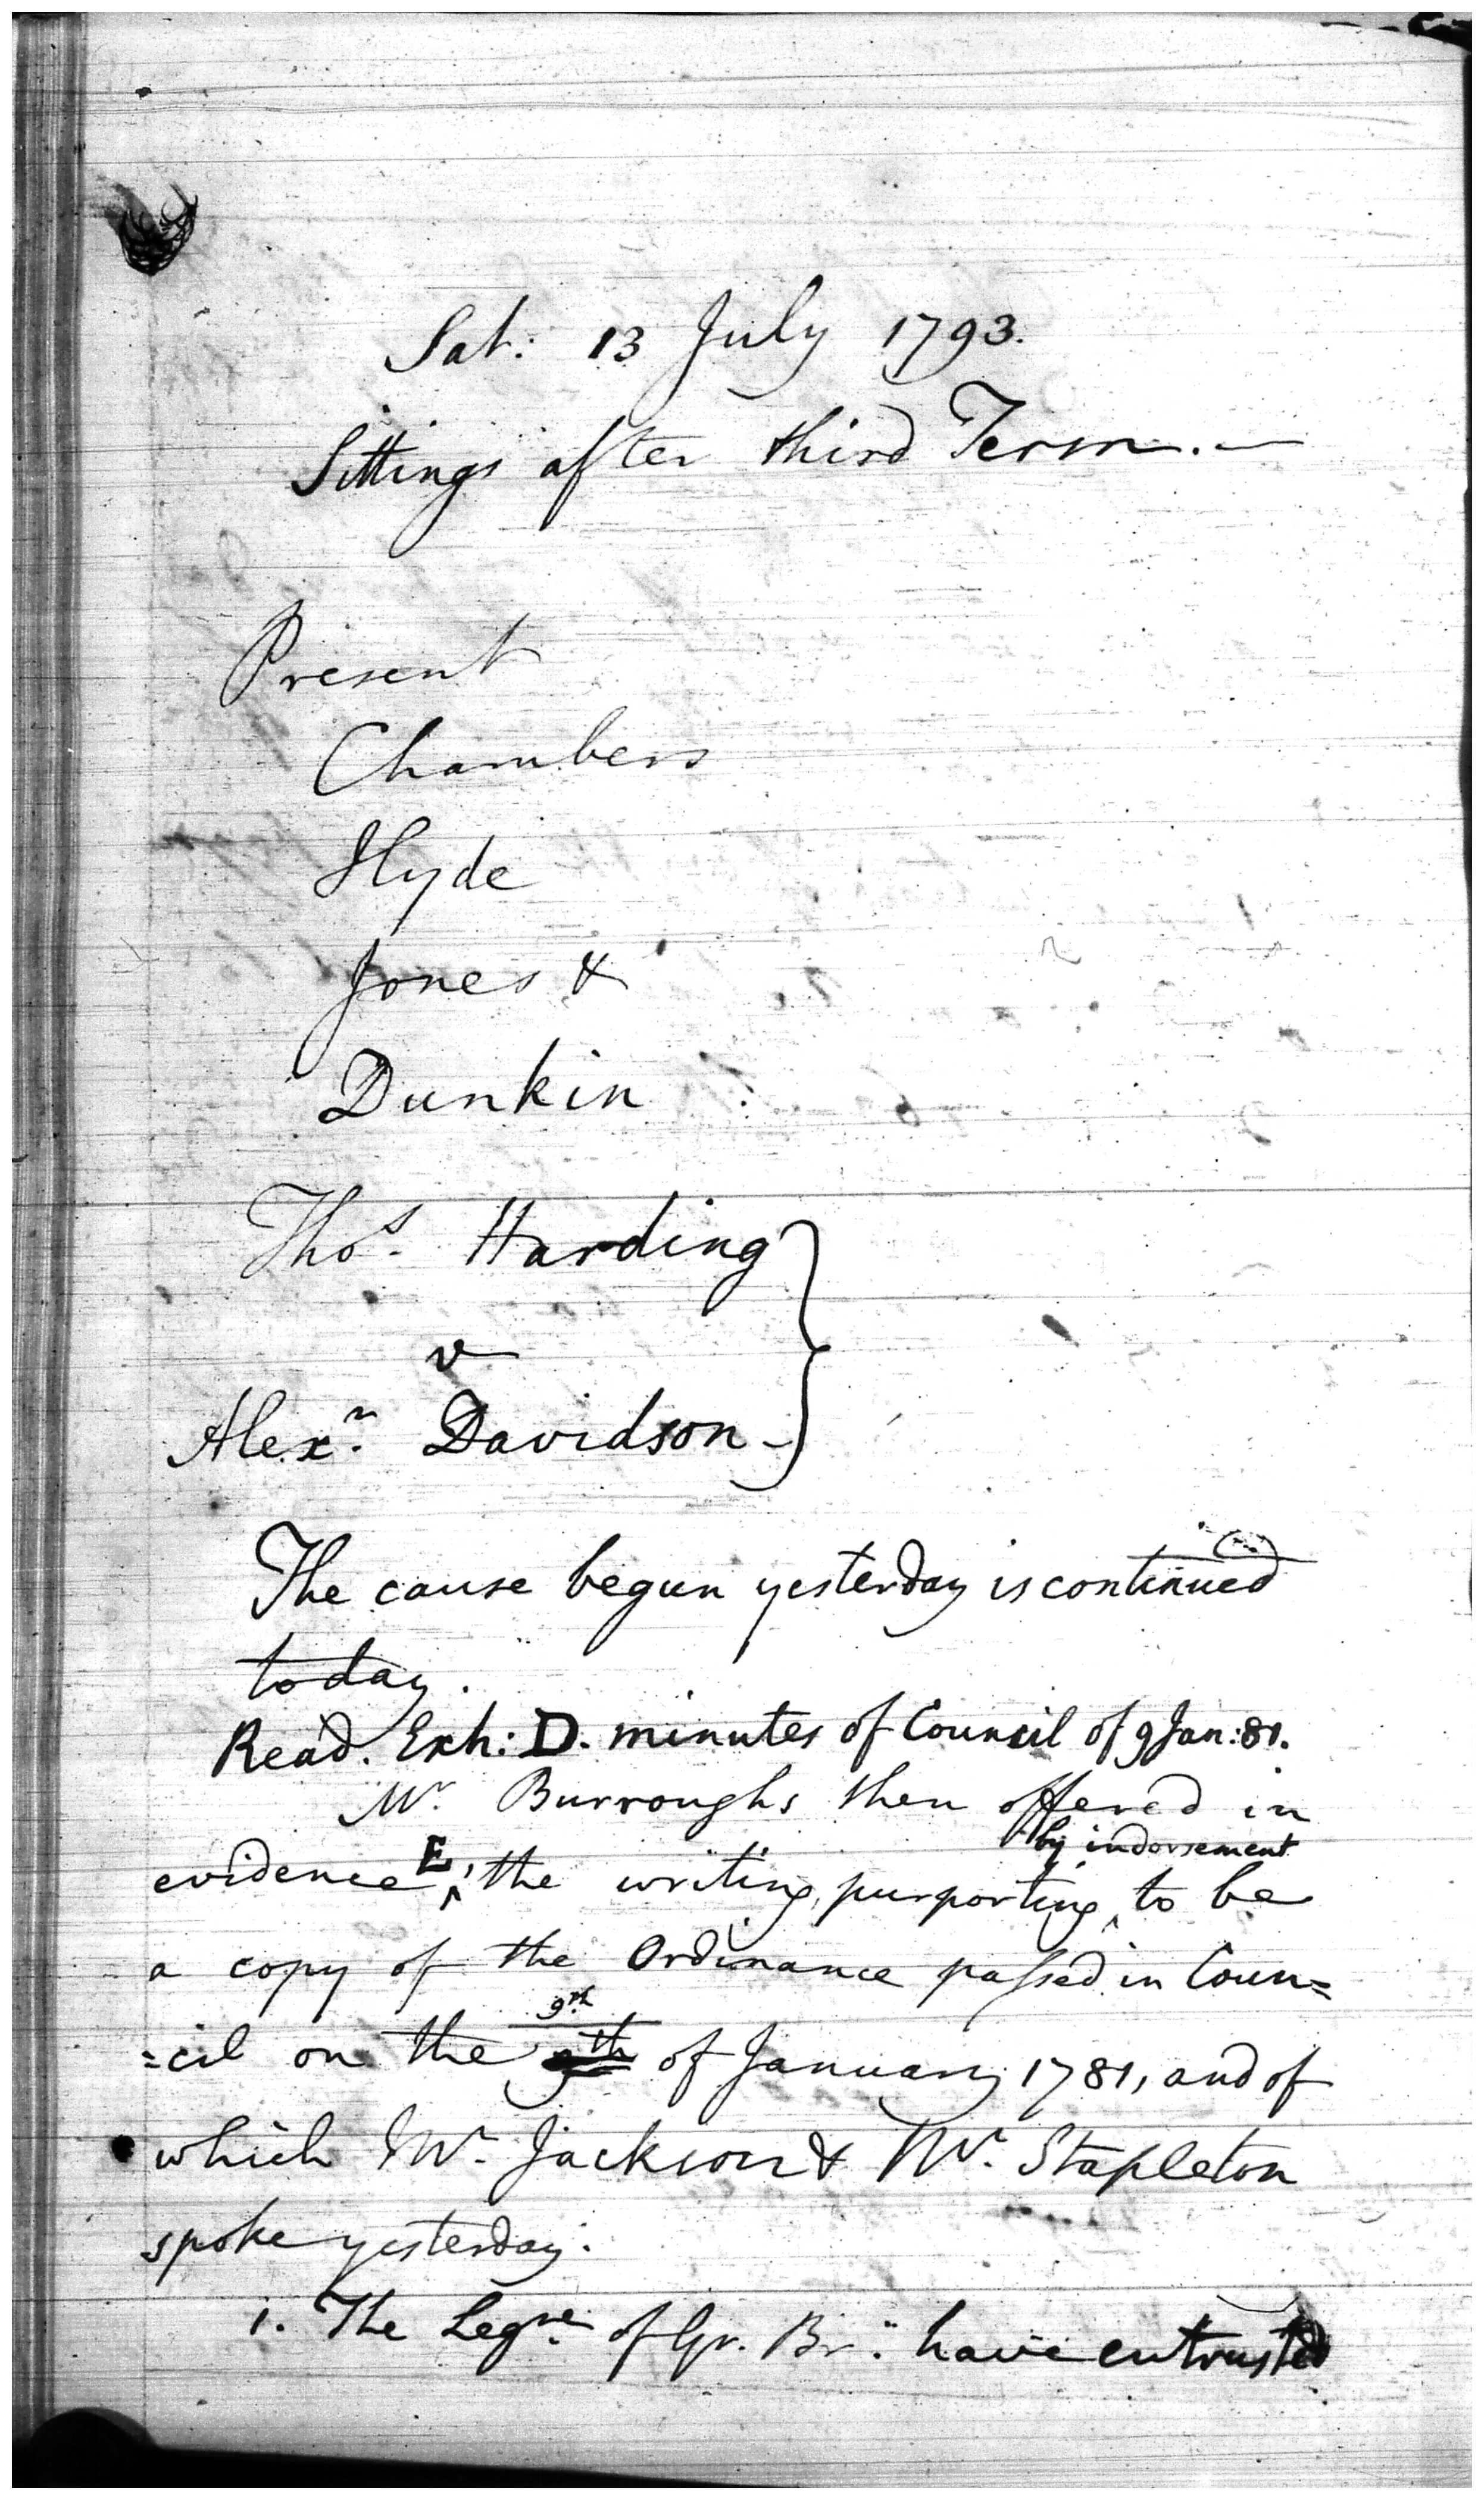 Sat: 13 July 1793.
Sittings after third Term.—
Present
Chambers
Hyde
Jones &
Dunkin
Thos. Harding
v
Alexr. Davidson
The cause begun yesterday is continued
today.
Read. Exh: D. minutes of Council of 9 Jan: 81.
Mr. Burroughs then offered in
by indorsement
evidence E, the writing, purporting to be
a copy of the Ordinance passed in Coun=
9th
=cil on the of January 1781, and of
which Mr. Jackson & Mr. Stapleton
spoke yesterday.
1. The Legre. of Gr. Br: have entrusted